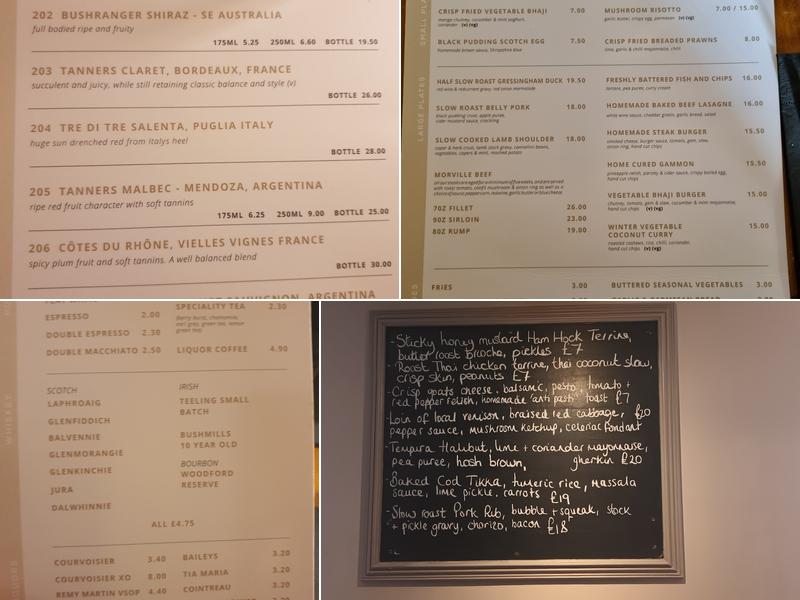 202 BUSHRANGER SHIRAZ - SE AUSTRALIA
full bodied ripe and fruity
175ML 5.25 250ML 6.60 BOTTLE 19.50
203 TANNERS CLARET, BORDEAUX, FRANCE
succulent and juicy, while still retaining classic balance and style (v)
BOTTLE 26.00
204 TRE DI TRE SALENTA, PUGLIA ITALY
huge sun drenched red from Italys heel
BOTTLE 28.00
205 TANNERS MALBEC - MENDOZA, ARGENTINA
ripe red fruit character with soft tannins
175ML 6.25 250ML 9.00 BOTTLE 25.00
206 CÔTES DU RHÔNE, VIELLES VIGNES FRANCE
spicy plum fruit and soft tannins. A well balanced blend
BOTTLE 30.00
SAUVIGNON, ARGENTINA
SMALL PLA
CRISP FRIED VEGETABLE BHAJI 7.00
mango chutney, cucumber & mint yoghurt,
coriander (v) (vg)
BLACK PUDDING SCOTCH EGG 7.50
homemade brown sauce, Shropshire blue
MUSHROOM RISOTTO 7.00 / 15.00
garlic butter, crispy egg, parmesan (v) (vg)
CRISP FRIED BREADED PRAWNS 8.00
lime, garlic & chilli mayonnaise, chilli
LARGE PLATES
HALF SLOW ROAST GRESSINGHAM DUCK 19.50
red wine & redcurrant gravy, red onion marmalade
SLOW ROAST BELLY PORK 18.00
black pudding crust, apple puree,
cider mustard sauce, crackling
SLOW COOKED LAMB SHOULDER 18.00
caper & herb crust, lamb stock gravy, cannellini beans,
vegetables, capers & mint, mashed potato
MORVILLE BEEF
7OZ FILLET 26.00
9OZ SIRLOIN 23.00
8OZ RUMP 19.00
FRESHLY BATTERED FISH AND CHIPS 16.00
tartare, pea puree, curry cream
HOMEMADE BAKED BEEF LASAGNE 16.00
white wine sauce, cheddar gratin, garlic bread, salad
HOMEMADE STEAK BURGER 15.50
smoked cheese, burger sauce, tomato, gem, slaw,
onion ring, hand cut chips
HOME CURED GAMMON 15.50
pineapple relish, parsley & cider sauce, crispy boiled egg,
hand cut chips
VEGETABLE BHAJI BURGER 15.00
chutney, tomato, gem & slaw, cucumber & mint mayonnaise,
hand cut chips (v) (vg)
WINTER VEGETABLE
COCONUT CURRY 15.00
roasted cashews, rice, chilli, coriander,
hand cut chips (v) (vg)
FRIES 3.00
BUTTERED SEASONAL VEGETABLES 3.00
ESPRESSO 2.00
DOUBLE ESPRESSO 2.30
DOUBLE MACCHIATO 2.50
SPECIALITY TEA 2.30
Berry burst, chamomile,
earl grey, green tea, lemon
green tea
LIQUOR COFFEE 4.90
WHISKEY
SCOTCH
LAPHROAIG
GLENFIDDICH
BALVENNIE
GLENMORANGIE
GLENKINCHIE
JURA
DALWHINNIE
IRISH
TEELING SMALL
BATCH
BUSHMILLS
10 YEAR OLD
BOURBON
WOODFORD
RESERVE
ALL £4.75
COURVOISIER 3.40
COURVOISIER XO 8.00
REMY MARTIN VSOP 4.40
BAILEYS 3.20
TIA MARIA 3.20
COINTREAU 3.20
- Sticky honey mustard Ham Hock Terrine,
butter roast brioche, pickles £7
- Roast Thai chicken terrine, thai coconut slaw,
crisp skin, peanuts £7
- Crisp goats cheese, balsamic, pesto, tomato +
red pepper relish, homemade 'anti pasti' toast £7
- Loin of local venison, braised red cabbage, £20
pepper sauce, mushroom ketchup, celeriac fondant
- Tempura Halibut, lime + coriander mayonnaise,
pea puree, hash brown, gherkin £20
- Baked Cod Tikka, tumeric rice, Massala
sauce, lime pickle, carrots £19
- Slow roast Pork Rib, bubble + squeak, stock
+ pickle gravy, chorizo, bacon £18